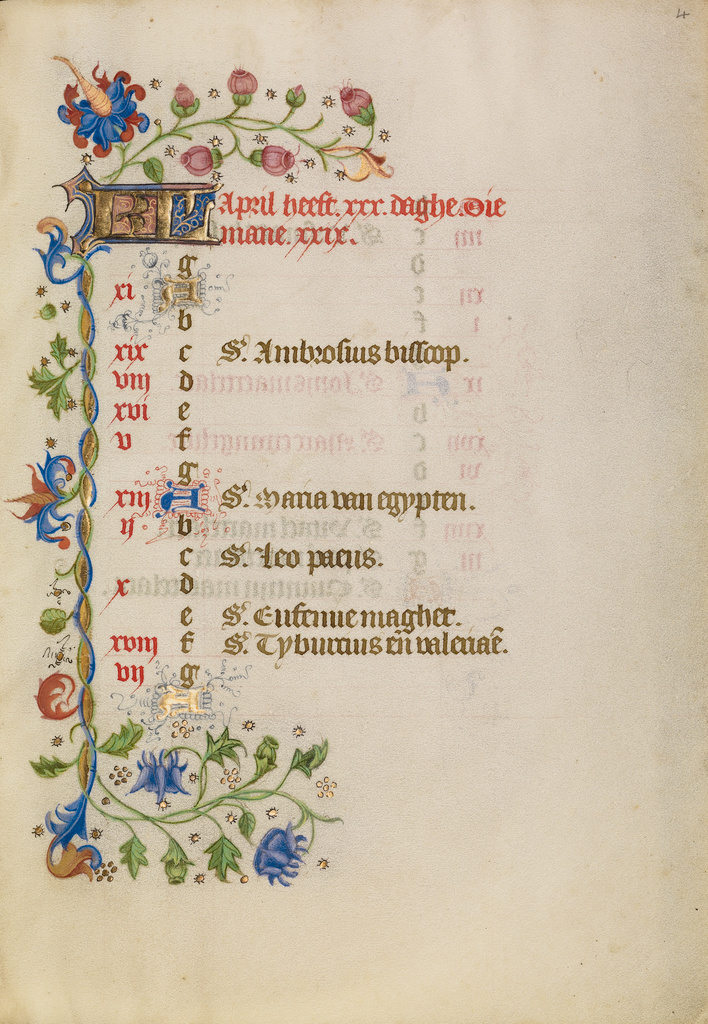 4
KL April heeft. xxx. daghe. Die
mane. xxix.
g
xi A
b
xix c S. Ambrosius bisscop.
viij d
xvi e
v f
g
xiij A S. Maria van egypten.
ij b
c S. Leo paeus.
x d
e S. Eufemie maghet.
xviij f S. Tyburcius eñ valeriaē.
vij g
A